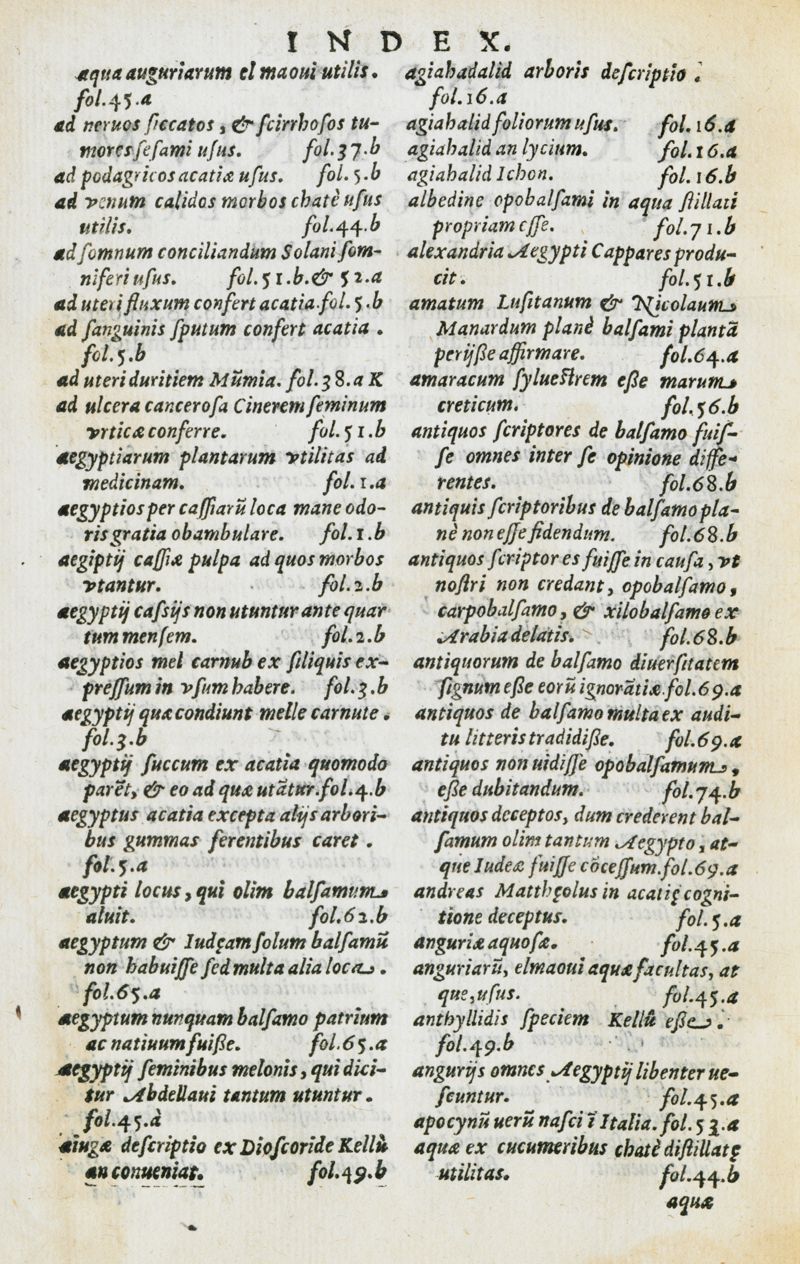 INDEX.
aqua auguriarum el maoui utilis.
fol.45.a
ad neruos ſiccatos, & ſcirrhoſos tu-
mores ſeſami uſus. fol.37.b
ad podagricos acatiæ uſus. fol.5.b
ad venum calidos morbos chatè uſus
utilis. fol.44.b
ad ſomnum conciliandum Solani ſom-
niferi uſus. fol.51.b.& 52.a
ad uteri fluxum confert acatia.fol.5.b
ad ſanguinis ſputum confert acatia.
fol.5.b
ad uteri duritiem Mũmia. fol.38.a K
ad ulcera canceroſa Cinerem ſeminum
vrticæ conferre. fol.51.b
aegyptiarum plantarum vtilitas ad
medicinam. fol.1.a
aegyptios per caſſiarũ loca mane odo-
ris gratia obambulare. fol.1.b
aegiptij caſſiæ pulpa ad quos morbos
vtantur. fol.2.b
aegyptij caſsijs non utuntur ante quar
tum menſem. fol.2.b
aegyptios mel carnub ex ſiliquis ex-
preſſum in vſum habere. fol.3.b
aegyptij quæ condiunt melle carnute.
fol.3.b
aegyptij ſuccum ex acatia quomodo
parẽt, & eo ad quæ utãtur.fol.4.b
aegyptus acatia excepta alijs arbori-
bus gummas ferentibus caret.
fol.5.a
aegypti locus, qui olim balſamum
aluit. fol.62.b
aegyptum & Iudęam ſolum balſamũ
non habuiſſe ſed multa alia loca.
fol.65.a
aegyptum nunquam balſamo patrium
ac natiuum fuiße. fol.65.a
aegyptij ſeminibus melonis, qui dici-
tur Abdellaui tantum utuntur.
fol.45.a
aiugæ deſcriptio ex Dioſcoride Kellù
an conueniat. fol.49.b
agiahadalid arboris deſcriptio.
fol.16.a
agiahalid foliorum uſus. fol.16.a
agiahalid an lycium. fol.16.a
agiahalid Ichon. fol.16.b
albedine opobalſami in aqua ſtillati
propriam eſſe. fol.71.b
alexandria Aegypti Cappares produ-
cit. fol.51.b
amatum Luſitanum & Nicolaum
Manardum planè balſami plantã
perijße affirmare. fol.64.a
amaracum ſylueſtrem eße marum
creticum. fol.56.b
antiquos ſcriptores de balſamo fuiſ-
ſe omnes inter ſe opinione diffe-
rentes. fol.68.b
antiquis ſcriptoribus de balſamo pla-
nè non eſſe fidendum. fol.68.b
antiquos ſcriptores fuiſſe in cauſa, vt
noſtri non credant, opobalſamo,
carpobalſamo, & xilobalſamo ex
Arabia delatis. fol.68.b
antiquorum de balſamo diuerſitatem
ſignum eße eorũ ignorãtiæ.fol.69.a
antiquos de balſamo multa ex audi-
tu litteris tradidiße. fol.69.a
antiquos non uidiſſe opobalſamum,
eße dubitandum. fol.74.b
antiquos deceptos, dum crederent bal-
ſamum olim tantum Aegypto, at-
que Iudeæ fuiſſe cõceſſum.fol.69.a
andreas Matthęolus in acatię cogni-
tione deceptus. fol.5.a
anguriæ aquoſæ. fol.45.a
anguriarũ, elmaoui aquæ facultas, at
que,uſus. fol.45.a
anthyllidis ſpeciem Kellù eße.
fol.49.b
angurijs omnes Aegyptij libenter ue-
ſcuntur. fol.45.a
apocynũ uerũ naſci ĩ Italia.fol.53.a
aquæ ex cucumeribus chatè diſtillatę
utilitas. fol.44.b
aquæ